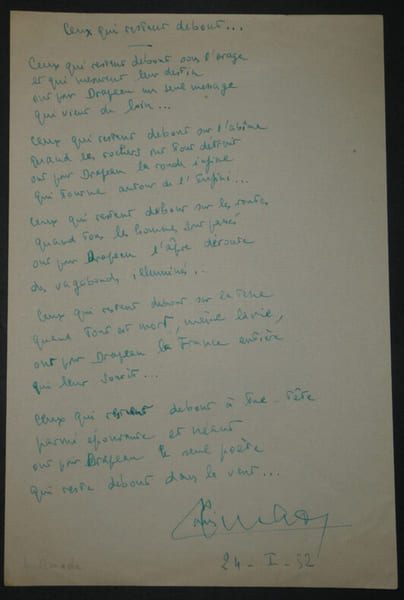 Ceux qui restent debout...
Ceux qui restent debout sous l'orage
et qui mesurent leur destin
ont pour Drapeau un seul message
qui vient de loin...
Ceux qui restent debout sur l'abîme
quand les rochers ont tout détruit
ont pour Drapeau la ronde infime
qui tourne autour de l'Infini...
Ceux qui restent debout sur les routes
quand tous les hommes sont passés
ont pour Drapeau l'âpre déroute
des vagabonds illuminés...
Ceux qui restent debout sur la terre
quand tout est mort, même la vie,
ont pour Drapeau la France entière
qui leur sourit...
Ceux qui restent debout à tue-tête
parmi épouvante et néant
ont pour Drapeau le seul poète
qui reste debout dans le vent...
24-I-52